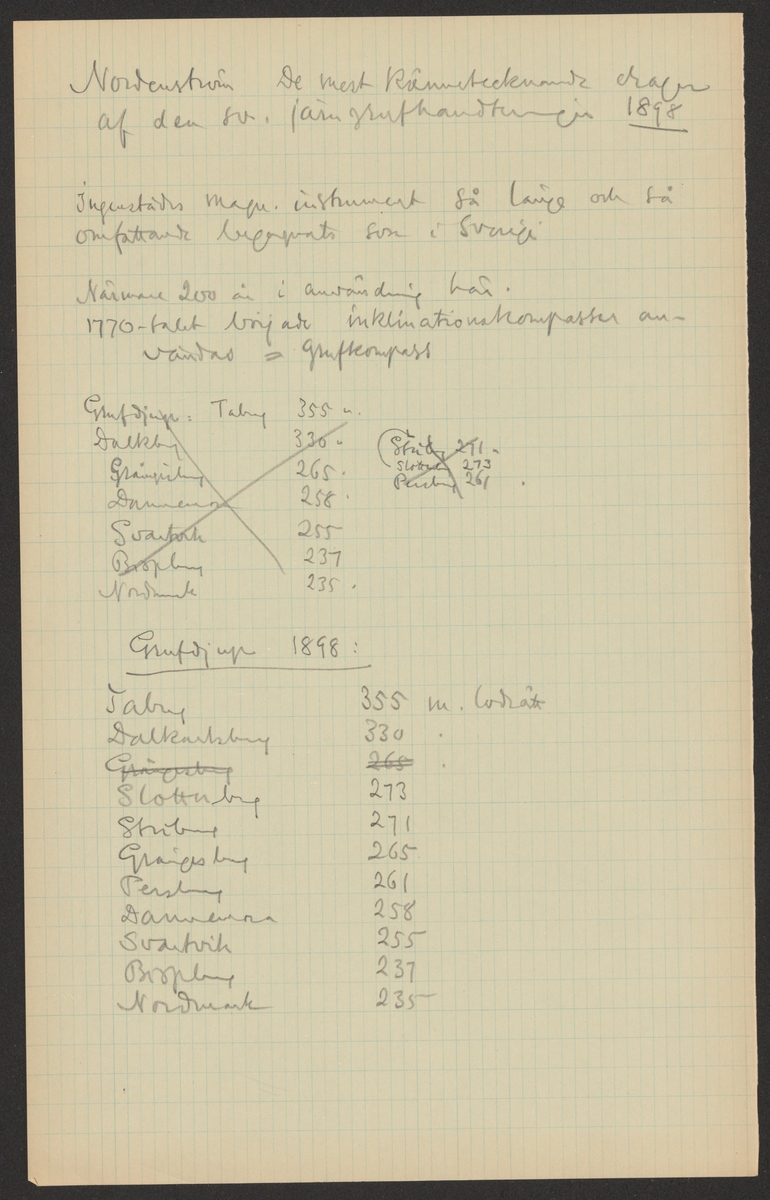 Nordenström De mest kännetecknande dragen
af den sv. järngrufhandteringen 1898
Ingenstädes magn. instrument så länge och så
omfattande begagnats som i Sverige
Närmare 200 år i användning här.
1770-talet började inklinationskompasser an-
vändas = Grufkompass
Grufdjup: Taberg 355 m.
Dalkbg 330 "
Grängesberg 265 "
Dannemora 258 "
Svartvik 255
Bispberg 237
Nordmark 235 "
(Striberg 271 "
Slotterb 273
Persberg 261 "
Grufdjup 1898:
Taberg 355 m. lodrätt
Dalkarlsberg 330 "
Grängesberg 265 "
Slotterberg 273
Striberg 271
Grängesberg 265
Persberg 261
Dannemora 258
Svartvik 255
Bispberg 237
Nordmark 235